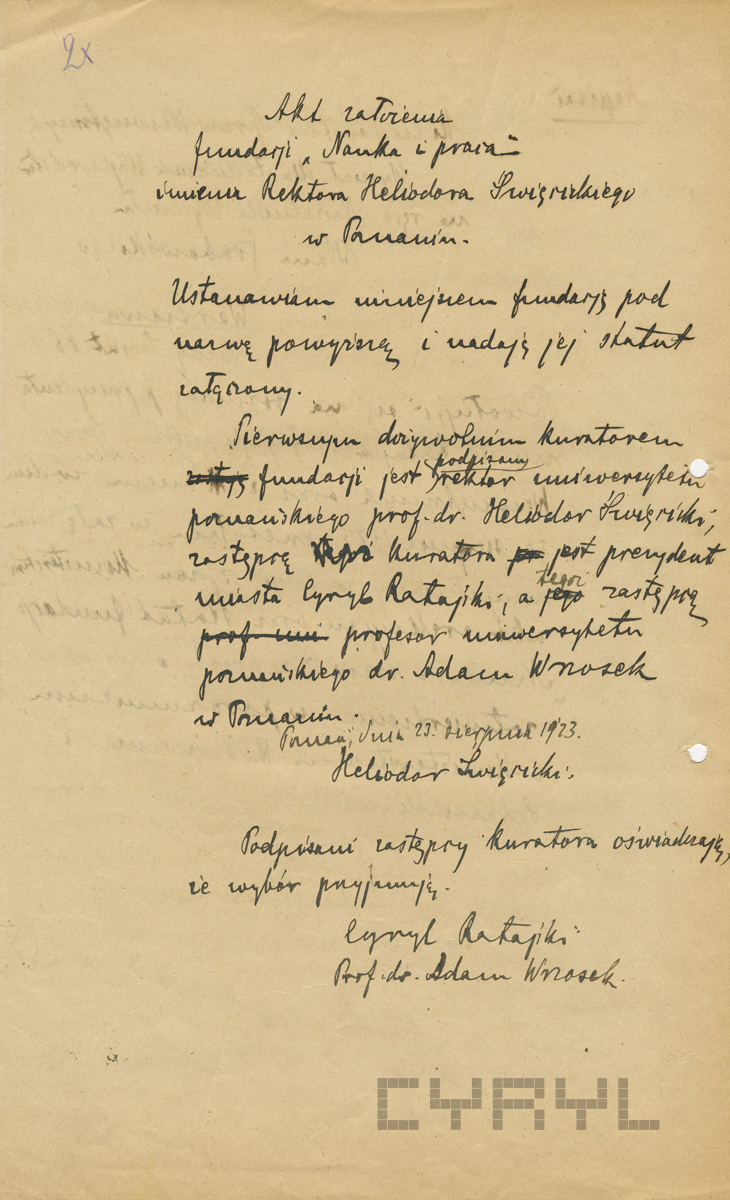 2x
Akt założenia
fundacji „Nauka i praca"
imienia Rektora Heliodora Święcickiego
w Poznaniu.
Ustanawiam niniejszem fundację pod
nazwę powyższą i nadaję jej statut
załączony.
Pierwszym dożywotnim kuratorem
fundacji jest podpisany rektor uniwersytetu
poznańskiego prof. dr. Heliodor Święcicki,
zastępcą kuratora jest prezydent
miasta Cyryl Ratajski, a tegoż zastępcą
prof. uni profesor uniwersytetu
poznańskiego dr. Adam Wrzosek
w Poznaniu.
Poznań, dnia 23. sierpnia 1923.
Heliodor Święcicki.
Podpisani zastępcy kuratora oświadczają,
że wybór przyjmują.
Cyryl Ratajski
Prof. dr. Adam Wrzosek.
CYRYL